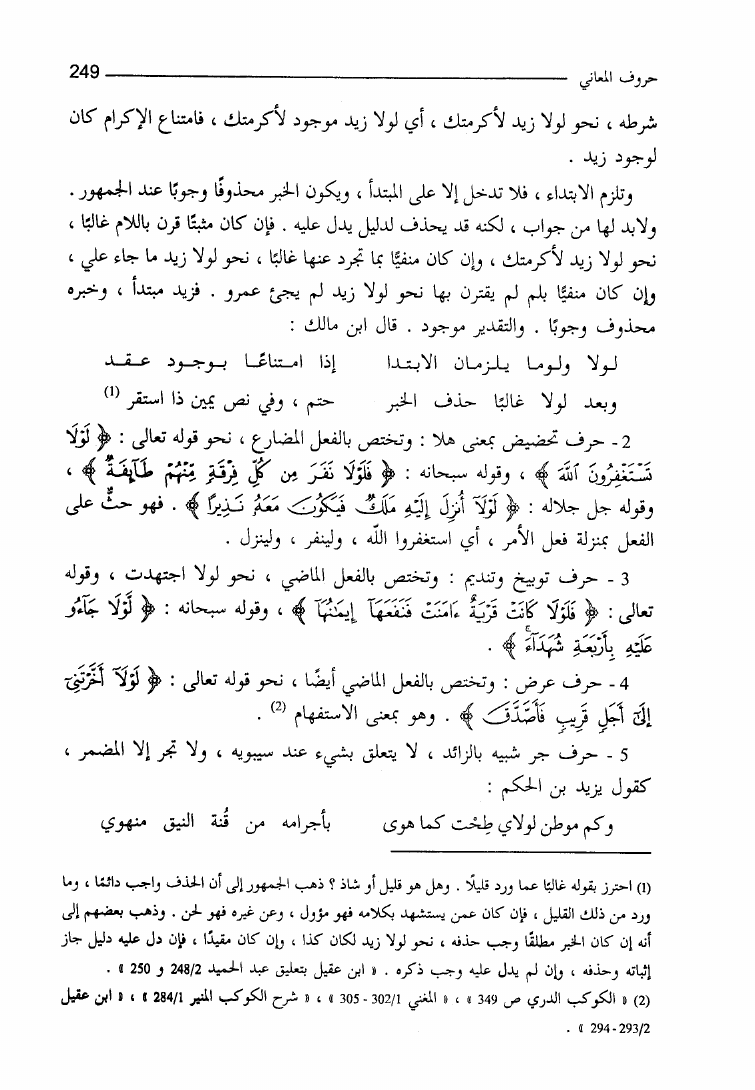 حروف المعاني 249
شرطه ، نحو لولا زيد لأكرمتك ، أي لولا زيد موجود لأكرمتك ، فامتناع الإكرام كان
لوجود زيد .
وتلزم الابتداء ، فلا تدخل إلا على المبتدأ ، ويكون الخبر محذوفًا وجوبًا عند الجمهور .
ولابد لها من جواب ، لكنه قد يحذف لدليل يدل عليه . فإن كان مثبتًا قرن باللام غالبًا ،
نحو لولا زيد لأكرمتك ، وإن كان منفيًّا بما تجرد عنها غالبًا ، نحو لولا زيد ما جاء علي ،
وإن كان منفيًّا بلم لم يقترن بها نحو لولا زيد لم يجئ عمرو . فزيد مبتدأ ، وخبره
محذوف وجوبًا . والتقدير موجود . قال ابن مالك :
لـولا ولـومـا يـلـزمـان الابـتـدا إذا امـتـنـاعًـا بـوجـود عـقـد
وبعد لولا غالبًا حذف الخبر حتم ، وفي نص يمين ذا استقر (1)
2 - حرف تحضيض بمعنى هلا : وتختص بالفعل المضارع ، نحو قوله تعالى : ﴿ لَوْلَا
تَسْتَغْفِرُونَ ٱللَّهَ ﴾ ، وقوله سبحانه : ﴿ فَلَوْلَا نَفَرَ مِن كُلِّ فِرْقَةٍ مِّنْهُمْ طَآئِفَةٌ ﴾ ،
وقوله جل جلاله : ﴿ لَوْلَآ أُنزِلَ إِلَيْهِ مَلَكٌ فَيَكُونَ مَعَهُ نَذِيرًا ﴾ . فهو حثٌّ على
الفعل بمنزلة فعل الأمر ، أي استغفروا الله ، ولينفر ، ولينزل .
3 - حرف توبيخ وتنديم : وتختص بالفعل الماضي ، نحو لولا اجتهدت ، وقوله
تعالى : ﴿ فَلَوْلَا كَانَتْ قَرْيَةٌ ءَامَنَتْ فَنَفَعَهَآ إِيمَٰنُهَآ ﴾ ، وقوله سبحانه : ﴿ لَّوْلَا جَآءُو
عَلَيْهِ بِأَرْبَعَةِ شُهَدَآءَ ﴾ .
4 - حرف عرض : وتختص بالفعل الماضي أيضًا ، نحو قوله تعالى : ﴿ لَوْلَآ أَخَّرْتَنِىٓ
إِلَىٰٓ أَجَلٍ قَرِيبٍ فَأَصَّدَّقَ ﴾ . وهو بمعنى الاستفهام (2) .
5 - حرف جر شبيه بالزائد ، لا يتعلق بشيء عند سيبويه ، ولا تجر إلا المضمر ،
كقول يزيد بن الحكم :
وكم موطن لولاي طِحْت كما هوى بأجرامه من قُنة النيق منهوي
(1) احترز بقوله غالبًا عما ورد قليلًا . وهل هو قليل أو شاذ ؟ ذهب الجمهور إلى أن الحذف واجب دائمًا ، وما
ورد من ذلك القليل ، فإن كان عمن يستشهد بكلامه فهو مؤول ، وعن غيره فهو لحن . وذهب بعضهم إلى
أنه إن كان الخبر مطلقًا وجب حذفه ، نحو لولا زيد لكان كذا ، وإن كان مقيدًا ، فإن دل عليه دليل جاز
إثباته وحذفه ، وإن لم يدل عليه وجب ذكره . « ابن عقيل بتعليق عبد الحميد 248/2 و 250 » .
(2) « الكوكب الدري ص 349 » ، « المغني 302/1 - 305 » ، « شرح الكوكب المنير 284/1 » ، « ابن عقيل
293/2-294 » .